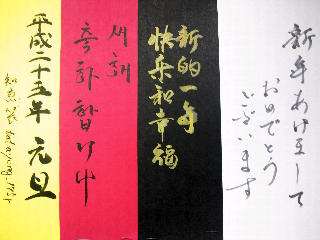 新年あけまして
おめでとう
ございます
新的一年
快乐和幸福
새해
축하합니다
平成二十五年 元旦